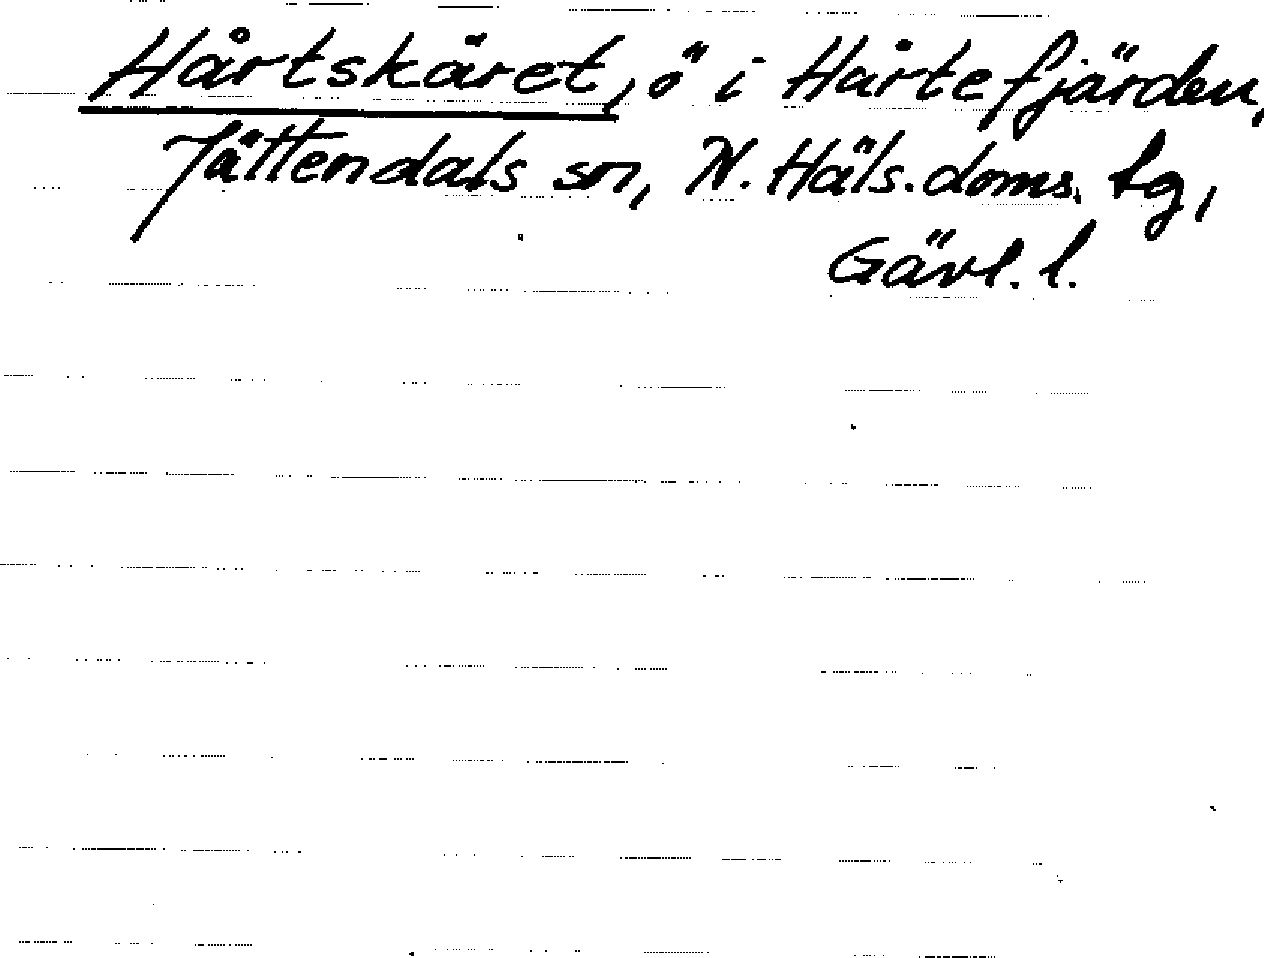 Hårtskäret, ö i Hårtefjärden,
Jättendals sn, N. Häls. doms. tg,
Gävl. l.